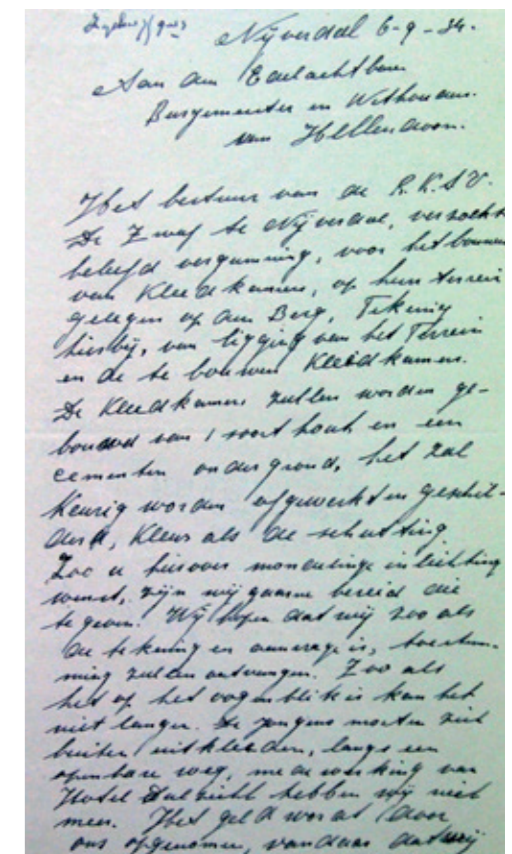 Nijverdal 6-9-34.
Aan den Edelachtbaren
Burgemeester en Wethouders
van Hellendoorn.
Het bestuur van de R.K.S.V.
De Zwaf te Nijverdal, verzoekt
beleefd vergunning, voor het bouwen
van Kleedkamers, op hun terrein
gelegen op den Berg, Tekening
hierbij, van ligging van het Terrein
en de te bouwen Kleedkamers.
De Kleedkamers zullen worden ge-
bouwd van 1 soort hout en een
cementen ondergrond, het zal
keurig worden afgewerkt en geschil-
derd, kleur als de schutting
Zoo u hierover mondelinge inlichting
wenst, zijn wij gaarne bereid die
te geven. Wij hopen dat wij zoo als
de tekening en aanvrage is, toestem-
ming zullen ontvangen. Zoo als
het op het oogenblik is kan het
niet langer. De jongens moeten zich
buiten uitkleeden, langs een
openbare weg, medewerking van
Hotel Dalzicht hebben wij niet
meer. Het geld wordt door
ons opgenomen, vandaar dat wij